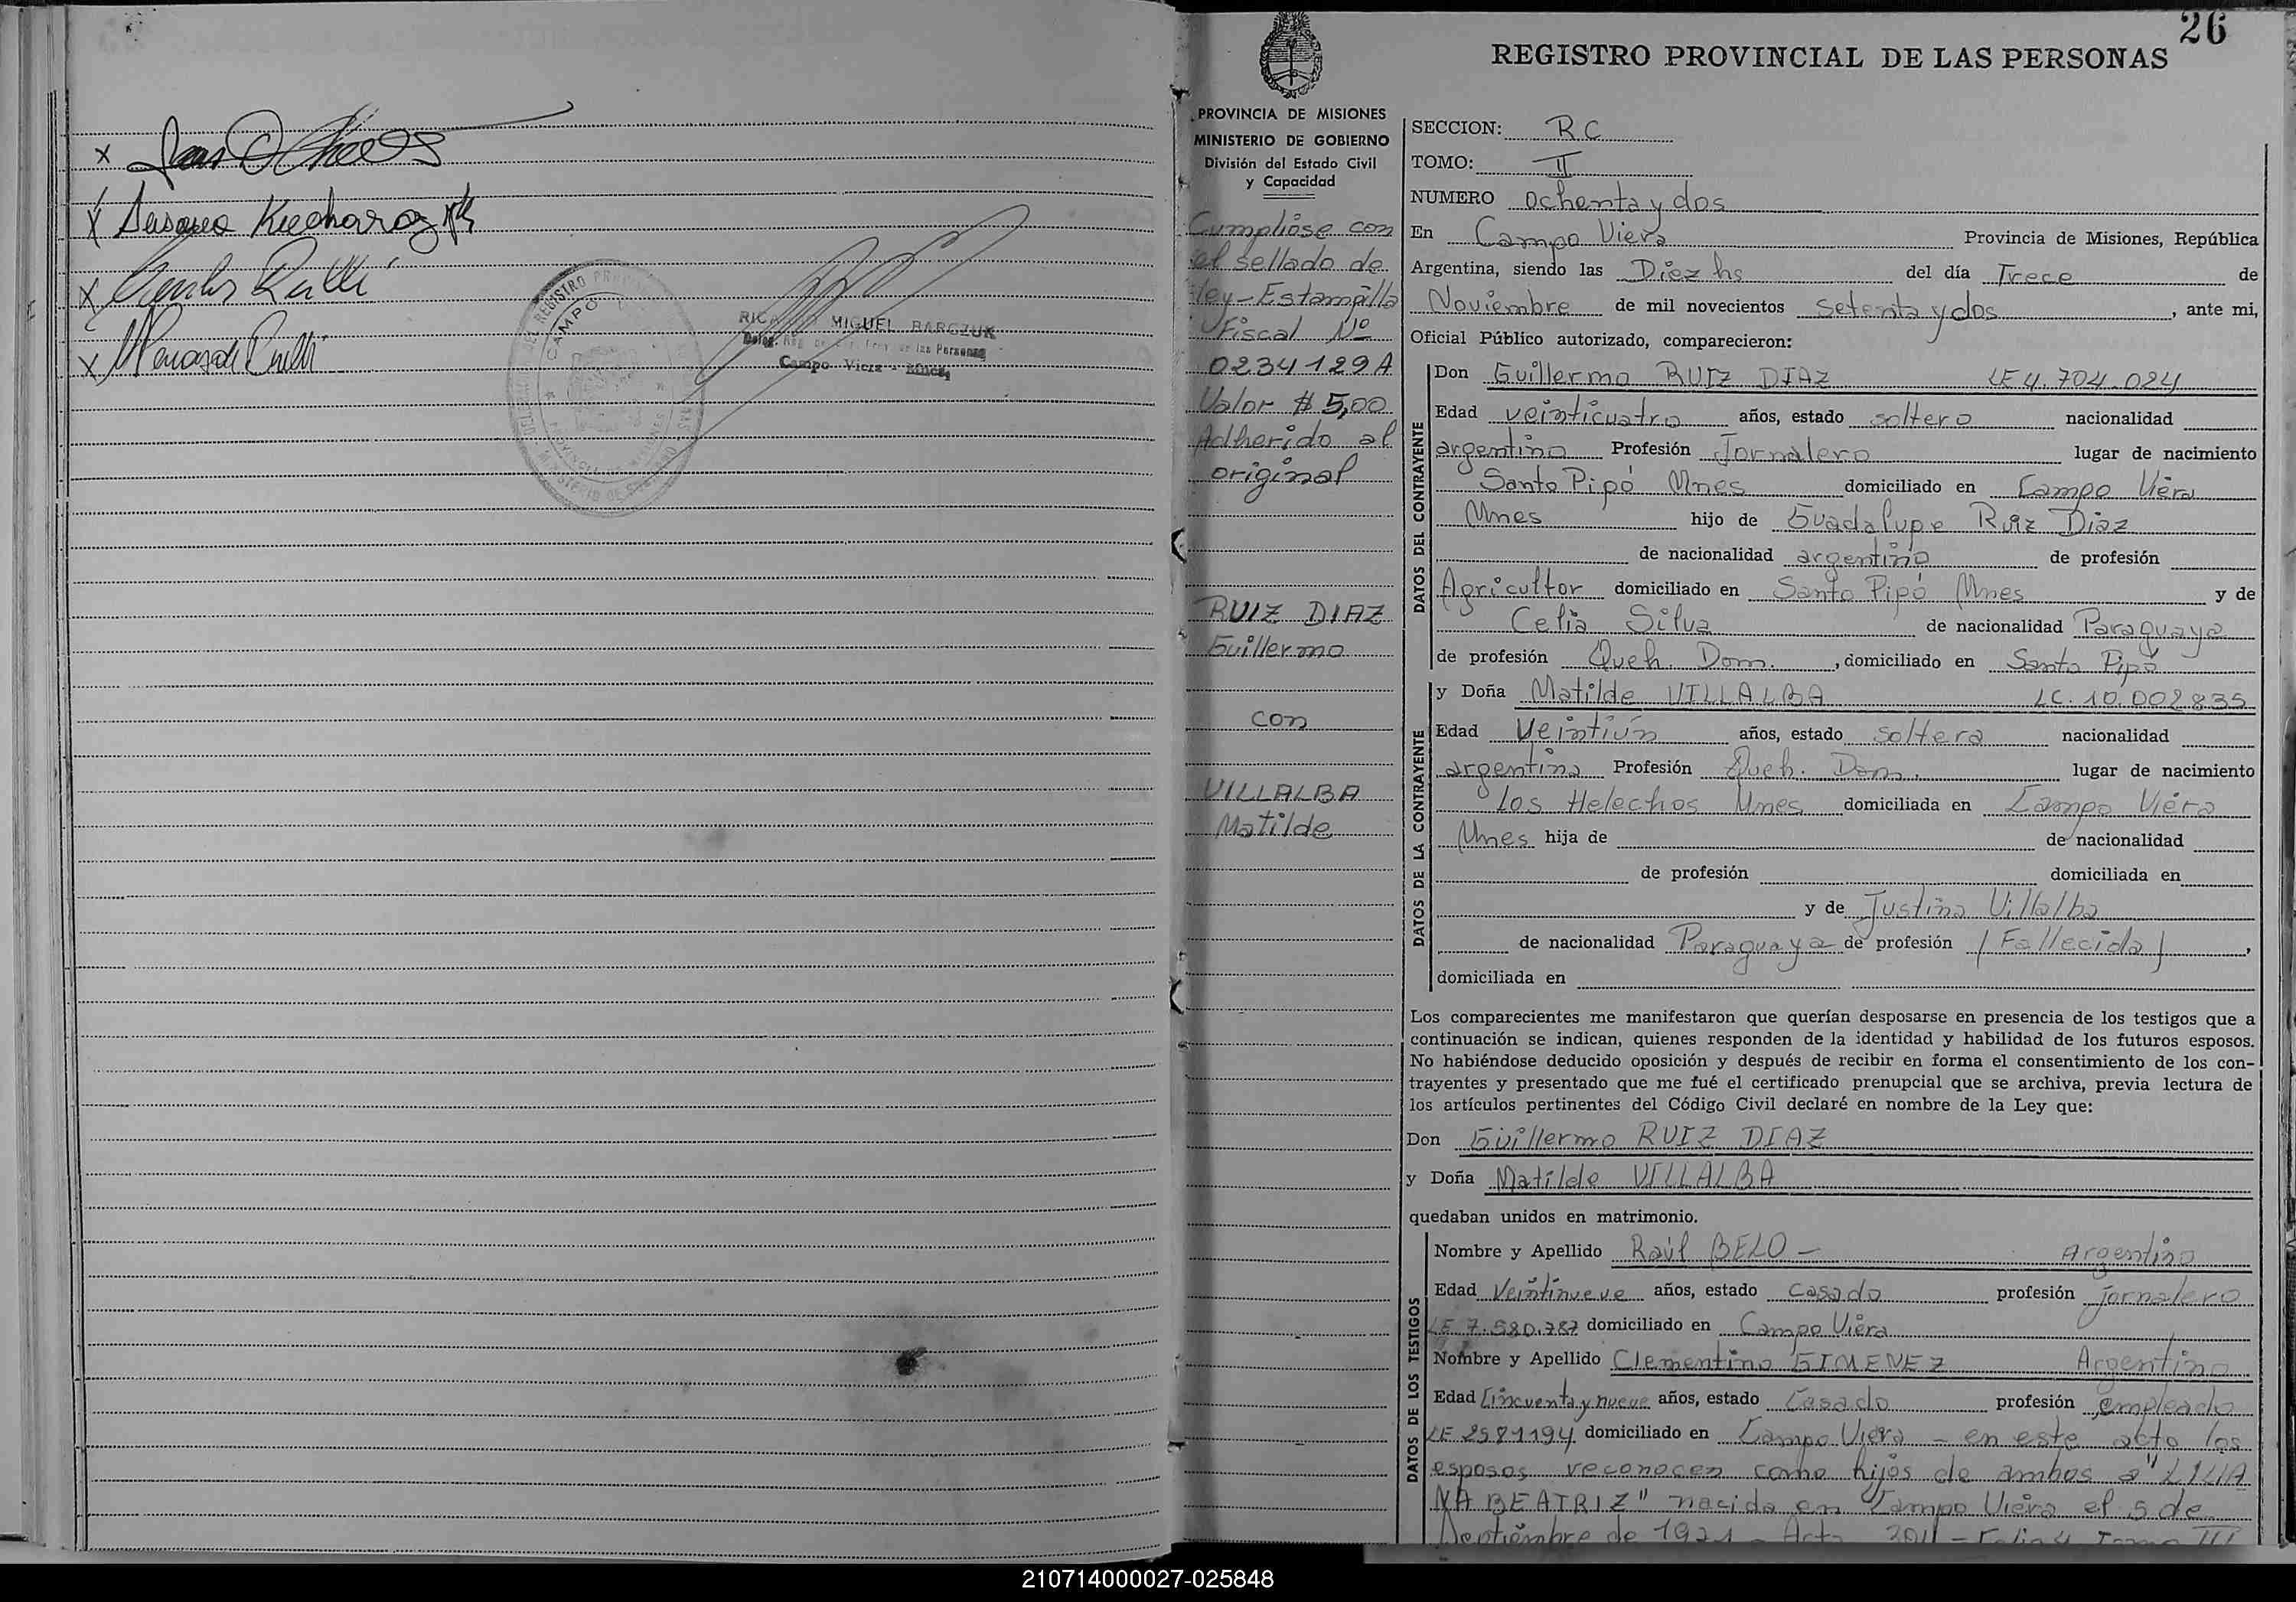 Carlos
RICARDO MIGUEL BARCZUK
Deleg. Reg. de las Personas
Campo Viera - Mnes.
26
REGISTRO PROVINCIAL DE LAS PERSONAS
PROVINCIA DE MISIONES
MINISTERIO DE GOBIERNO
División del Estado Civil
y Capacidad
Cumplióse con
el sellado de
ley - Estampilla
Fiscal Nº
0234129A
Valor $ 5,00
Adherido al
original
RUIZ DIAZ
Guillermo
con
VILLALBA
Matilde
SECCION: RC
TOMO: II
NUMERO Ochenta y dos
En Campo Viera Provincia de Misiones, República
Argentina, siendo las Diez hs del día Trece de
Noviembre de mil novecientos setenta y dos, ante mi,
Oficial Público autorizado, comparecieron:
DATOS DEL CONTRAYENTE
Don Guillermo RUIZ DIAZ LE 4.704.024
Edad veinticuatro años, estado soltero nacionalidad
argentino Profesión Jornalero lugar de nacimiento
Santo Pipó Mnes domiciliado en Campo Viera
Mnes hijo de Guadalupe Ruiz Diaz
de nacionalidad argentino de profesión
Agricultor domiciliado en Santo Pipó Mnes y de
Celia Silva de nacionalidad Paraguaya
de profesión Queh. Dom., domiciliado en Santo Pipó
DATOS DE LA CONTRAYENTE
y Doña Matilde VILLALBA LC. 10.002.835
Edad Veintiún años, estado soltera nacionalidad
argentina Profesión Queh. Dom. lugar de nacimiento
Los Helechos Mnes domiciliada en Campo Viera
Mnes hija de de nacionalidad
de profesión domiciliada en
y de Justina Villalba
de nacionalidad Paraguaya de profesión (Fallecida),
domiciliada en
Los comparecientes me manifestaron que querían desposarse en presencia de los testigos que a
continuación se indican, quienes responden de la identidad y habilidad de los futuros esposos.
No habiéndose deducido oposición y después de recibir en forma el consentimiento de los con-
trayentes y presentado que me fué el certificado prenupcial que se archiva, previa lectura de
los artículos pertinentes del Código Civil declaré en nombre de la Ley que:
Don Guillermo RUIZ DIAZ
y Doña Matilde VILLALBA
quedaban unidos en matrimonio.
DATOS DE LOS TESTIGOS
Nombre y Apellido Raúl BELO - Argentino
Edad Veintinueve años, estado casado profesión jornalero
LE 7.580.787 domiciliado en Campo Viera
Nombre y Apellido Clementino GIMENEZ Argentino
Edad Cincuenta y nueve años, estado Casado profesión empleado
LE 2581194 domiciliado en Campo Viera - en este acto los
esposos reconocen como hijos de ambos a "LILIA
NA BEATRIZ" nacida en Campo Viera el 5 de
Septiembre de 1971 - Acta 2011 - Folio 4 Tomo III
210714000027-025848